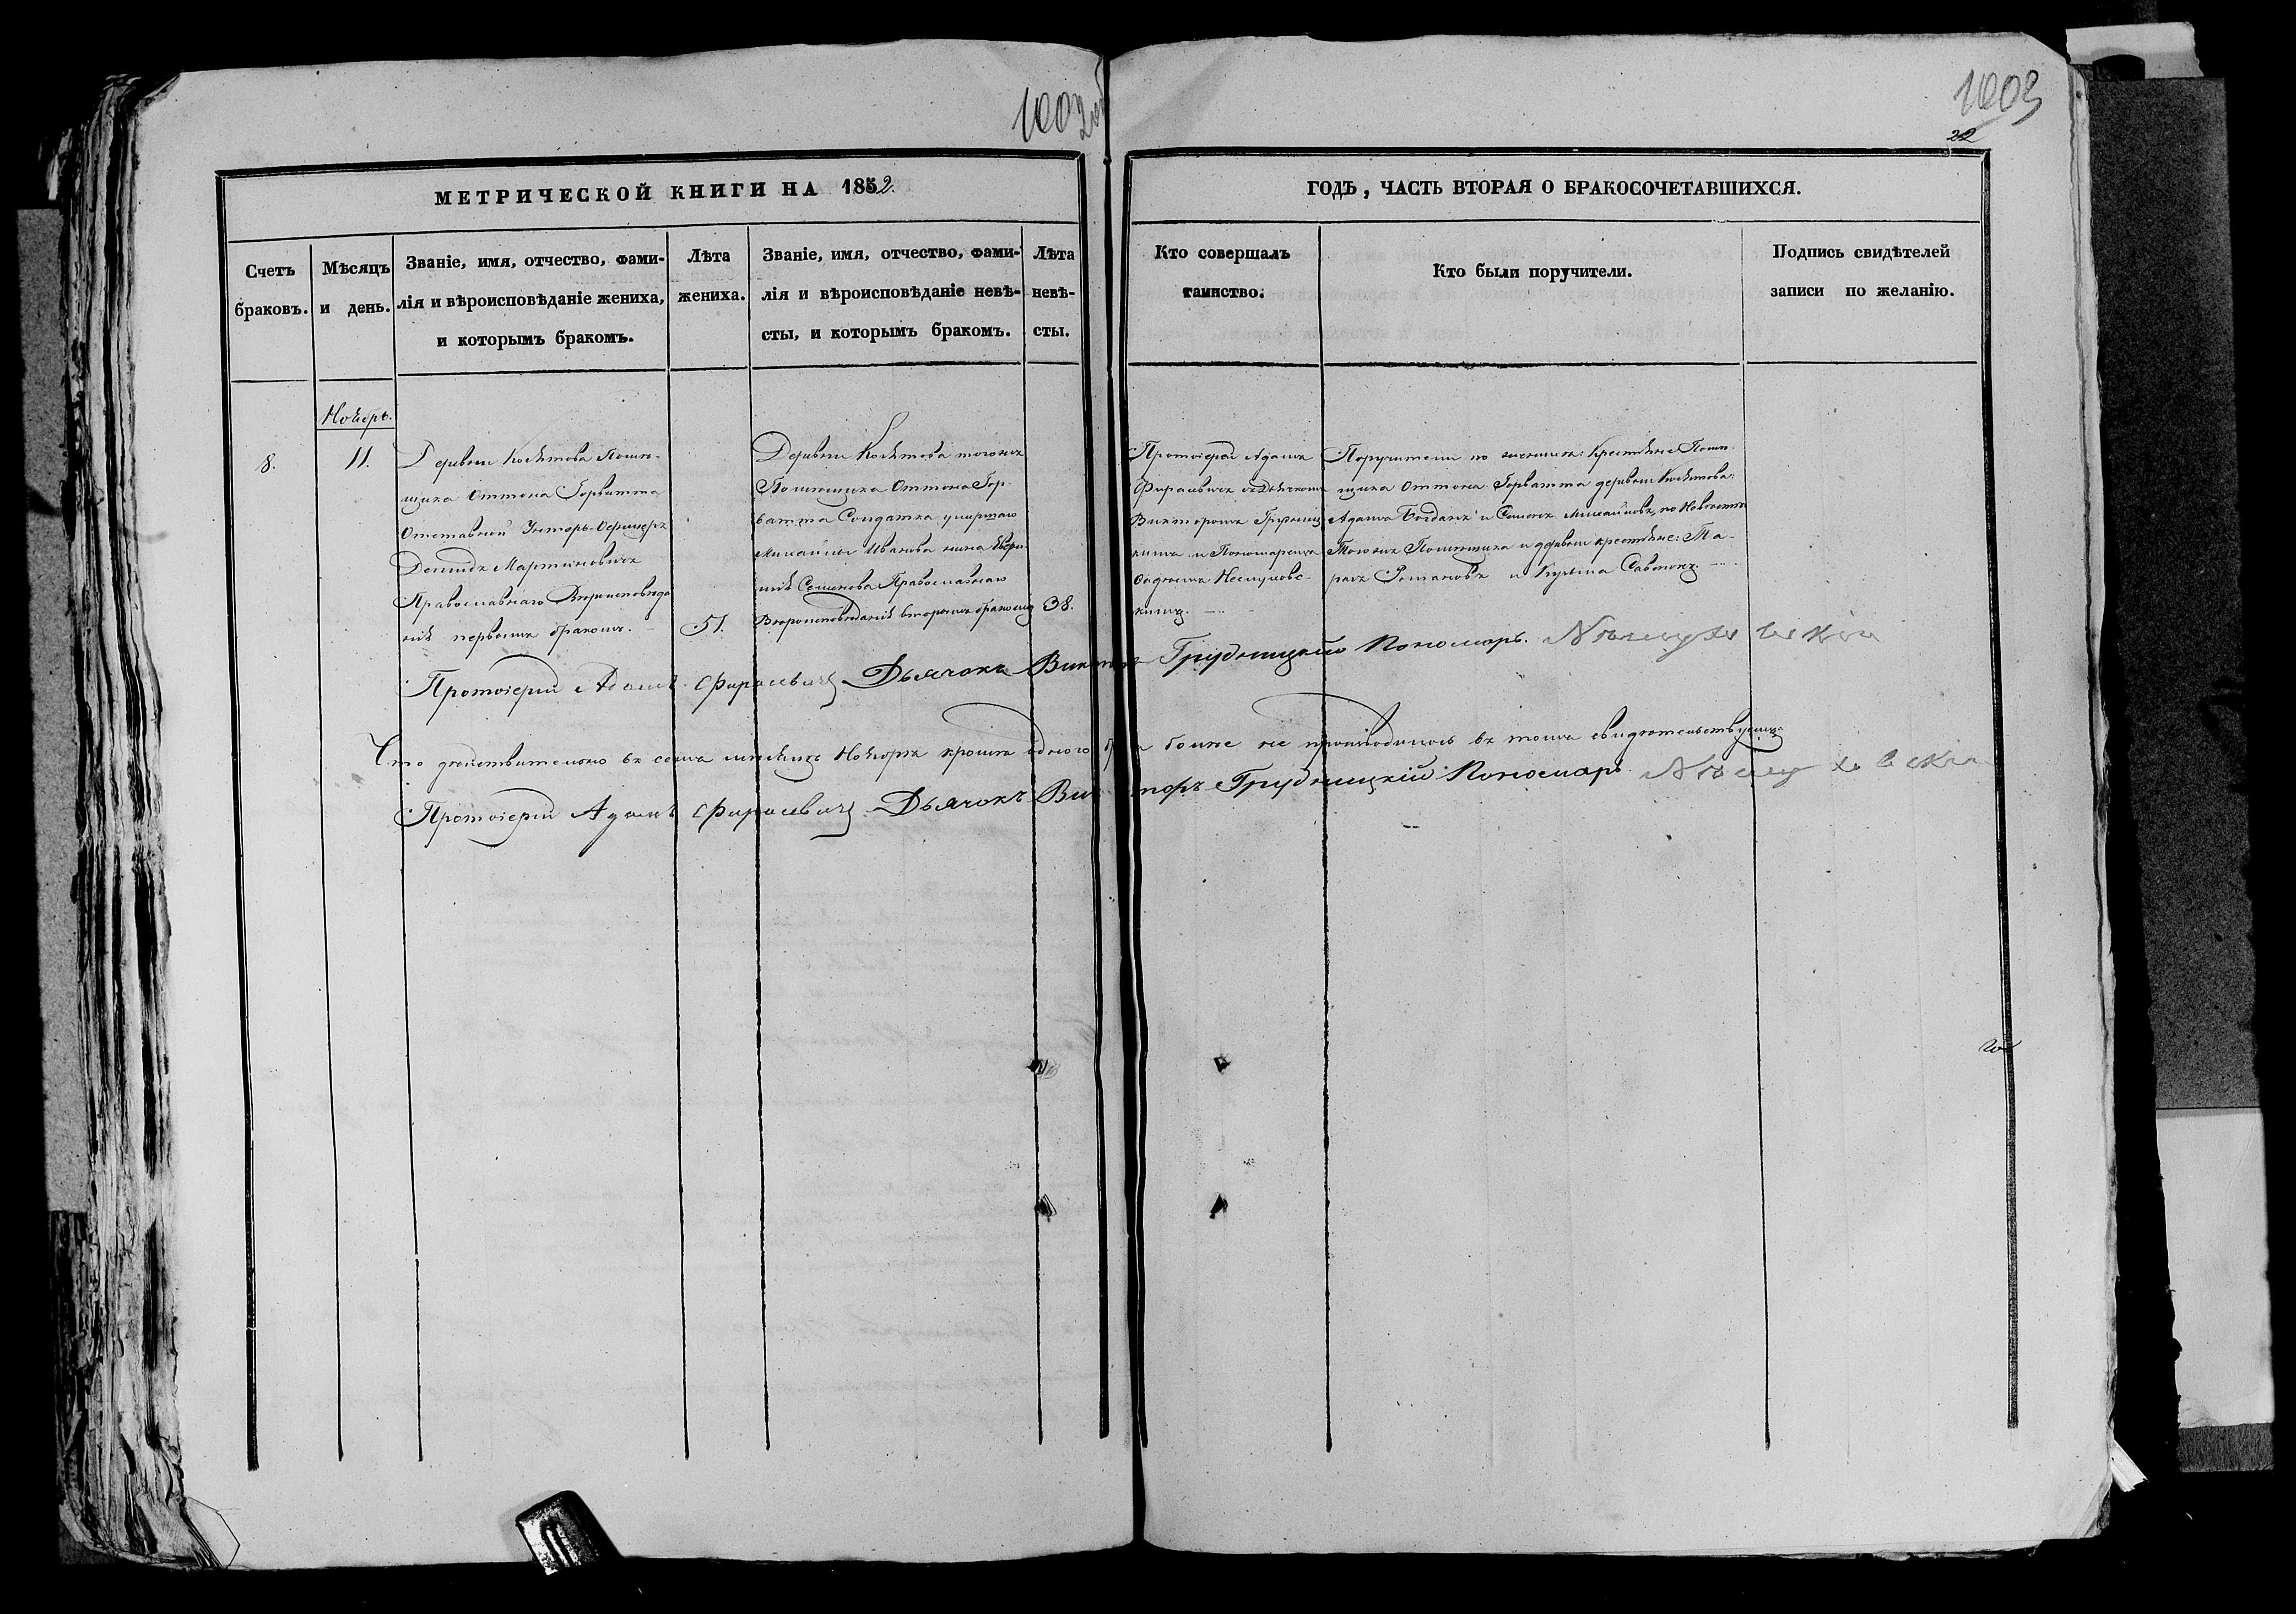 1002 об
1003
22
МЕТРИЧЕСКОЙ КНИГИ НА 1852.
ГОДЪ, ЧАСТЬ ВТОРАЯ О БРАКОСОЧЕТАВШИХСЯ.
Счетъ
браковъ.
Мѣсяцъ
и день.
Званіе, имя, отчество, фами-
лія и вѣроисповѣданіе жениха,
и которымъ бракомъ.
Лѣта
жениха.
Званіе, имя, отчество, фами-
лія и вѣроисповѣданіе невѣ-
сты, и которымъ бракомъ.
Лѣта
невѣ-
сты.
Кто совершалъ
таинство.
Кто были поручители.
Подпись свидѣтелей
записи по желанію.
Ноябрь.
8.
11.
Деревни Помѣ-
щика Оттона Горватта
Отставной Унтеръ-Офицеръ
Мартиновичъ
Православнаго Вѣроисповѣда
нія первымъ бракомъ.
51.
Деревни тогожъ
Помѣщика Оттона Гор-
ватта Солдатка умершаго
Михайлы Иванова жина
Семенова Православнаго
Вѣроисповѣданія вторымъ бракомъ
38.
Протоіерей Адамъ
Фирасевичъ съ Дьячкомъ
Викторомъ Грудниц
кимъ и Пономаремъ
кимъ.
Поручители по женихѣ: Крестьяне Помѣ-
щика Оттона Горватта деревни
Адамъ Богданъ и Семенъ Михайловъ, по Невѣстѣ
Тогожъ Помѣщика и деревни крестьяне: Та-
расъ Романовъ и Кузьма
Протоіерей Адамъ Фирасевичъ Дьячокъ Викторъ Грудницкій Пономарь
Что дѣйствительно въ семъ мѣсяцѣ Ноябрѣ кромѣ одного бра болѣе не производилось въ томъ свидѣтельствуемъ
Протоіерей Адамъ Фирасевичъ Дьячокъ Викторъ Грудницкій Пономарь